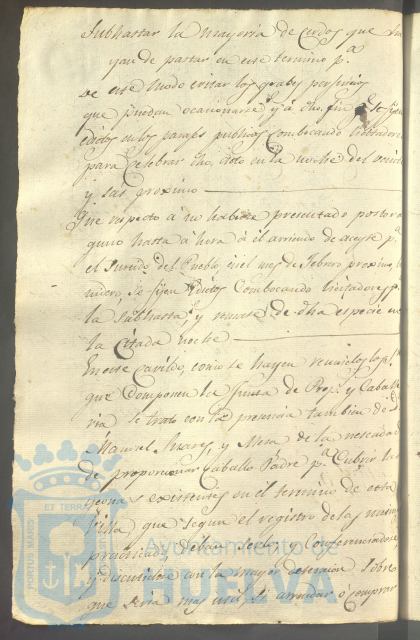 Subhastar la mayoria de Cerdos que
yan de pastar en este termino pª
De este modo evitar los graves perjuicios
que puedan ocacionarse y á dho fin se fijen
edictos en los parages publicos Combocando licitadores
para Celebrar dho acto en la noche del veinte
y seis proximo
Que respecto á no haberse presentado postor
guno hasta á hora á el arriendo de aceyte pª
el Surtido del Pueblo, en el mes de Febrero proximo, be
nidero, Se fijen Edictos Combocando licitadores pª
la Subhasta y remate de dha especie en
la Citada noche
En este Cavildo, como se hayen reunidos los
que Componen la Junta de Propˢ y Caball
ria se trato con la precencia tambien de Dⁿ
Manuel Suarez, y Mora de la necesidad
de proporcionar Caballo Padre pª Cubrir las
Yeguas existentes en el termino de esta
Villa que segun el registro de las mismas
practicado, deban serlo, y Conferenciadose
y discutidose con la mayor detencion Sobre
que seria mas util si arrendar o comprar
PORTUS MARIS ET TERRAE
Ayuntamiento de
HUELVA